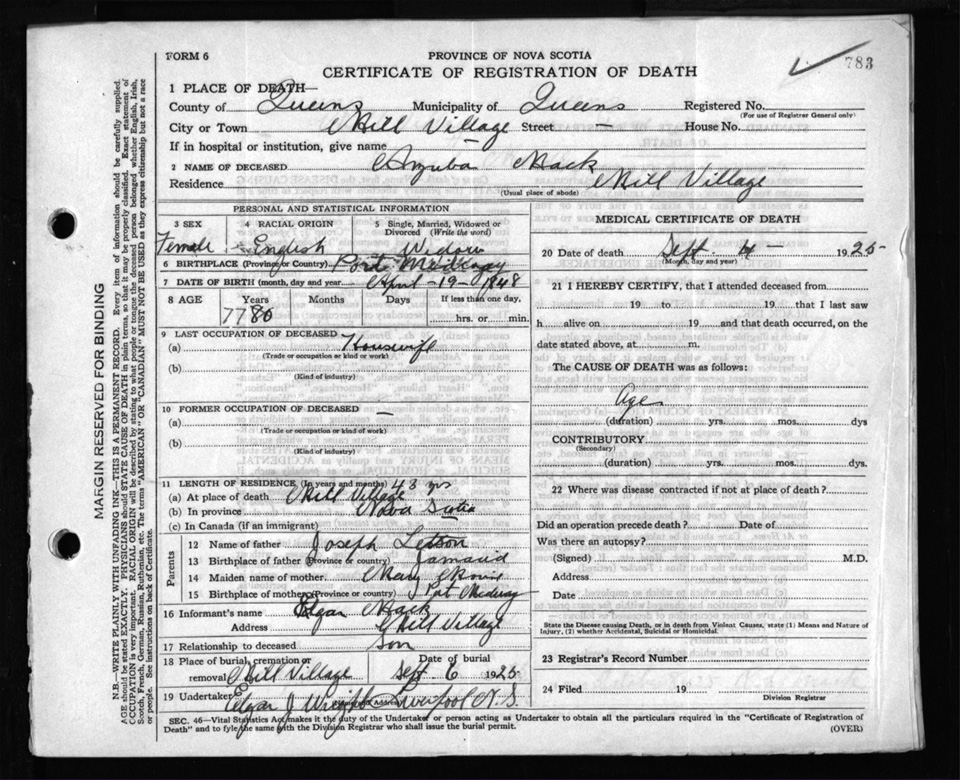 783
FORM 6
PROVINCE OF NOVA SCOTIA
CERTIFICATE OF REGISTRATION OF DEATH
1 PLACE OF DEATH—
County of Queens Municipality of Queens Registered No.
(For use of Registrar General only)
City or Town Mill Village Street — House No.
If in hospital or institution, give name —
2 NAME OF DECEASED Mack
Residence Mill Village
(Usual place of abode)
PERSONAL AND STATISTICAL INFORMATION
3 SEX 4 RACIAL ORIGIN 5 Single, Married, Widowed or Divorced (Write the word)
Female English Widow
6 BIRTHPLACE (Province or Country) Port Medway
7 DATE OF BIRTH (month, day and year) April - 19 - 1848
8 AGE Years Months Days If less than one day,
77 80 hrs. or min.
9 LAST OCCUPATION OF DECEASED
(a) Housewife
(Trade or occupation or kind or work)
(b)
(Kind of industry)
10 FORMER OCCUPATION OF DECEASED —
(a)
(Trade or occupation or kind or work)
(b)
(Kind of industry)
11 LENGTH OF RESIDENCE (In years and months) 43 yrs
(a) At place of death Mill Village
(b) In province Nova Scotia
(c) In Canada (if an immigrant)
Parents
12 Name of father Joseph Letson
13 Birthplace of father (Province or country)
14 Maiden name of mother Mary
15 Birthplace of mother (Province or country) Port Medway
16 Informant's name Mack
Address Mill Village
17 Relationship to deceased Son
18 Place of burial, cremation or removal Mill Village Date of burial Sept 6 1925
19 Undertaker Edgar J Liverpool N.S.
MEDICAL CERTIFICATE OF DEATH
20 Date of death Sept 4 — 1925
(Month, day and year)
21 I HEREBY CERTIFY, that I attended deceased from
19 to 19 that I last saw
h alive on 19 and that death occurred, on the
date stated above, at m.
The CAUSE OF DEATH was as follows:
Age
(duration) yrs. mos. dys
CONTRIBUTORY
(Secondary)
(duration) yrs. mos. dys.
22 Where was disease contracted if not at place of death?
Did an operation precede death? Date of
Was there an autopsy?
(Signed) M.D.
Address
Date
State the Disease causing Death, or in death from Violent Causes, state (1) Means and Nature of
Injury, (2) whether Accidental, Suicidal or Homicidal.
23 Registrar's Record Number
24 Filed 19
Division Registrar
SEC. 46—Vital Statistics Act makes it the duty of the Undertaker or person acting as Undertaker to obtain all the particulars required in the "Certificate of Registration of
Death" and to fyle the same with the Division Registrar who shall issue the burial permit.
(OVER)
MARGIN RESERVED FOR BINDING
N.B.—WRITE PLAINLY WITH UNFADING INK—THIS IS A PERMANENT RECORD. Every item of information should be carefully supplied.
AGE should be stated EXACTLY. PHYSICIANS should STATE CAUSE OF DEATH in plain terms, so that it may be properly classified. Exact statement of
OCCUPATION is very important. RACIAL ORIGIN will be described by stating to what people or tongue the deceased person belonged whether English, Irish,
Scotch, French, German, Russian, Ruthenian, etc. The terms "AMERICAN" OR "CANADIAN" MUST NOT BE USED as they express citizenship but not a race
or people. See instructions on back of Certificate.